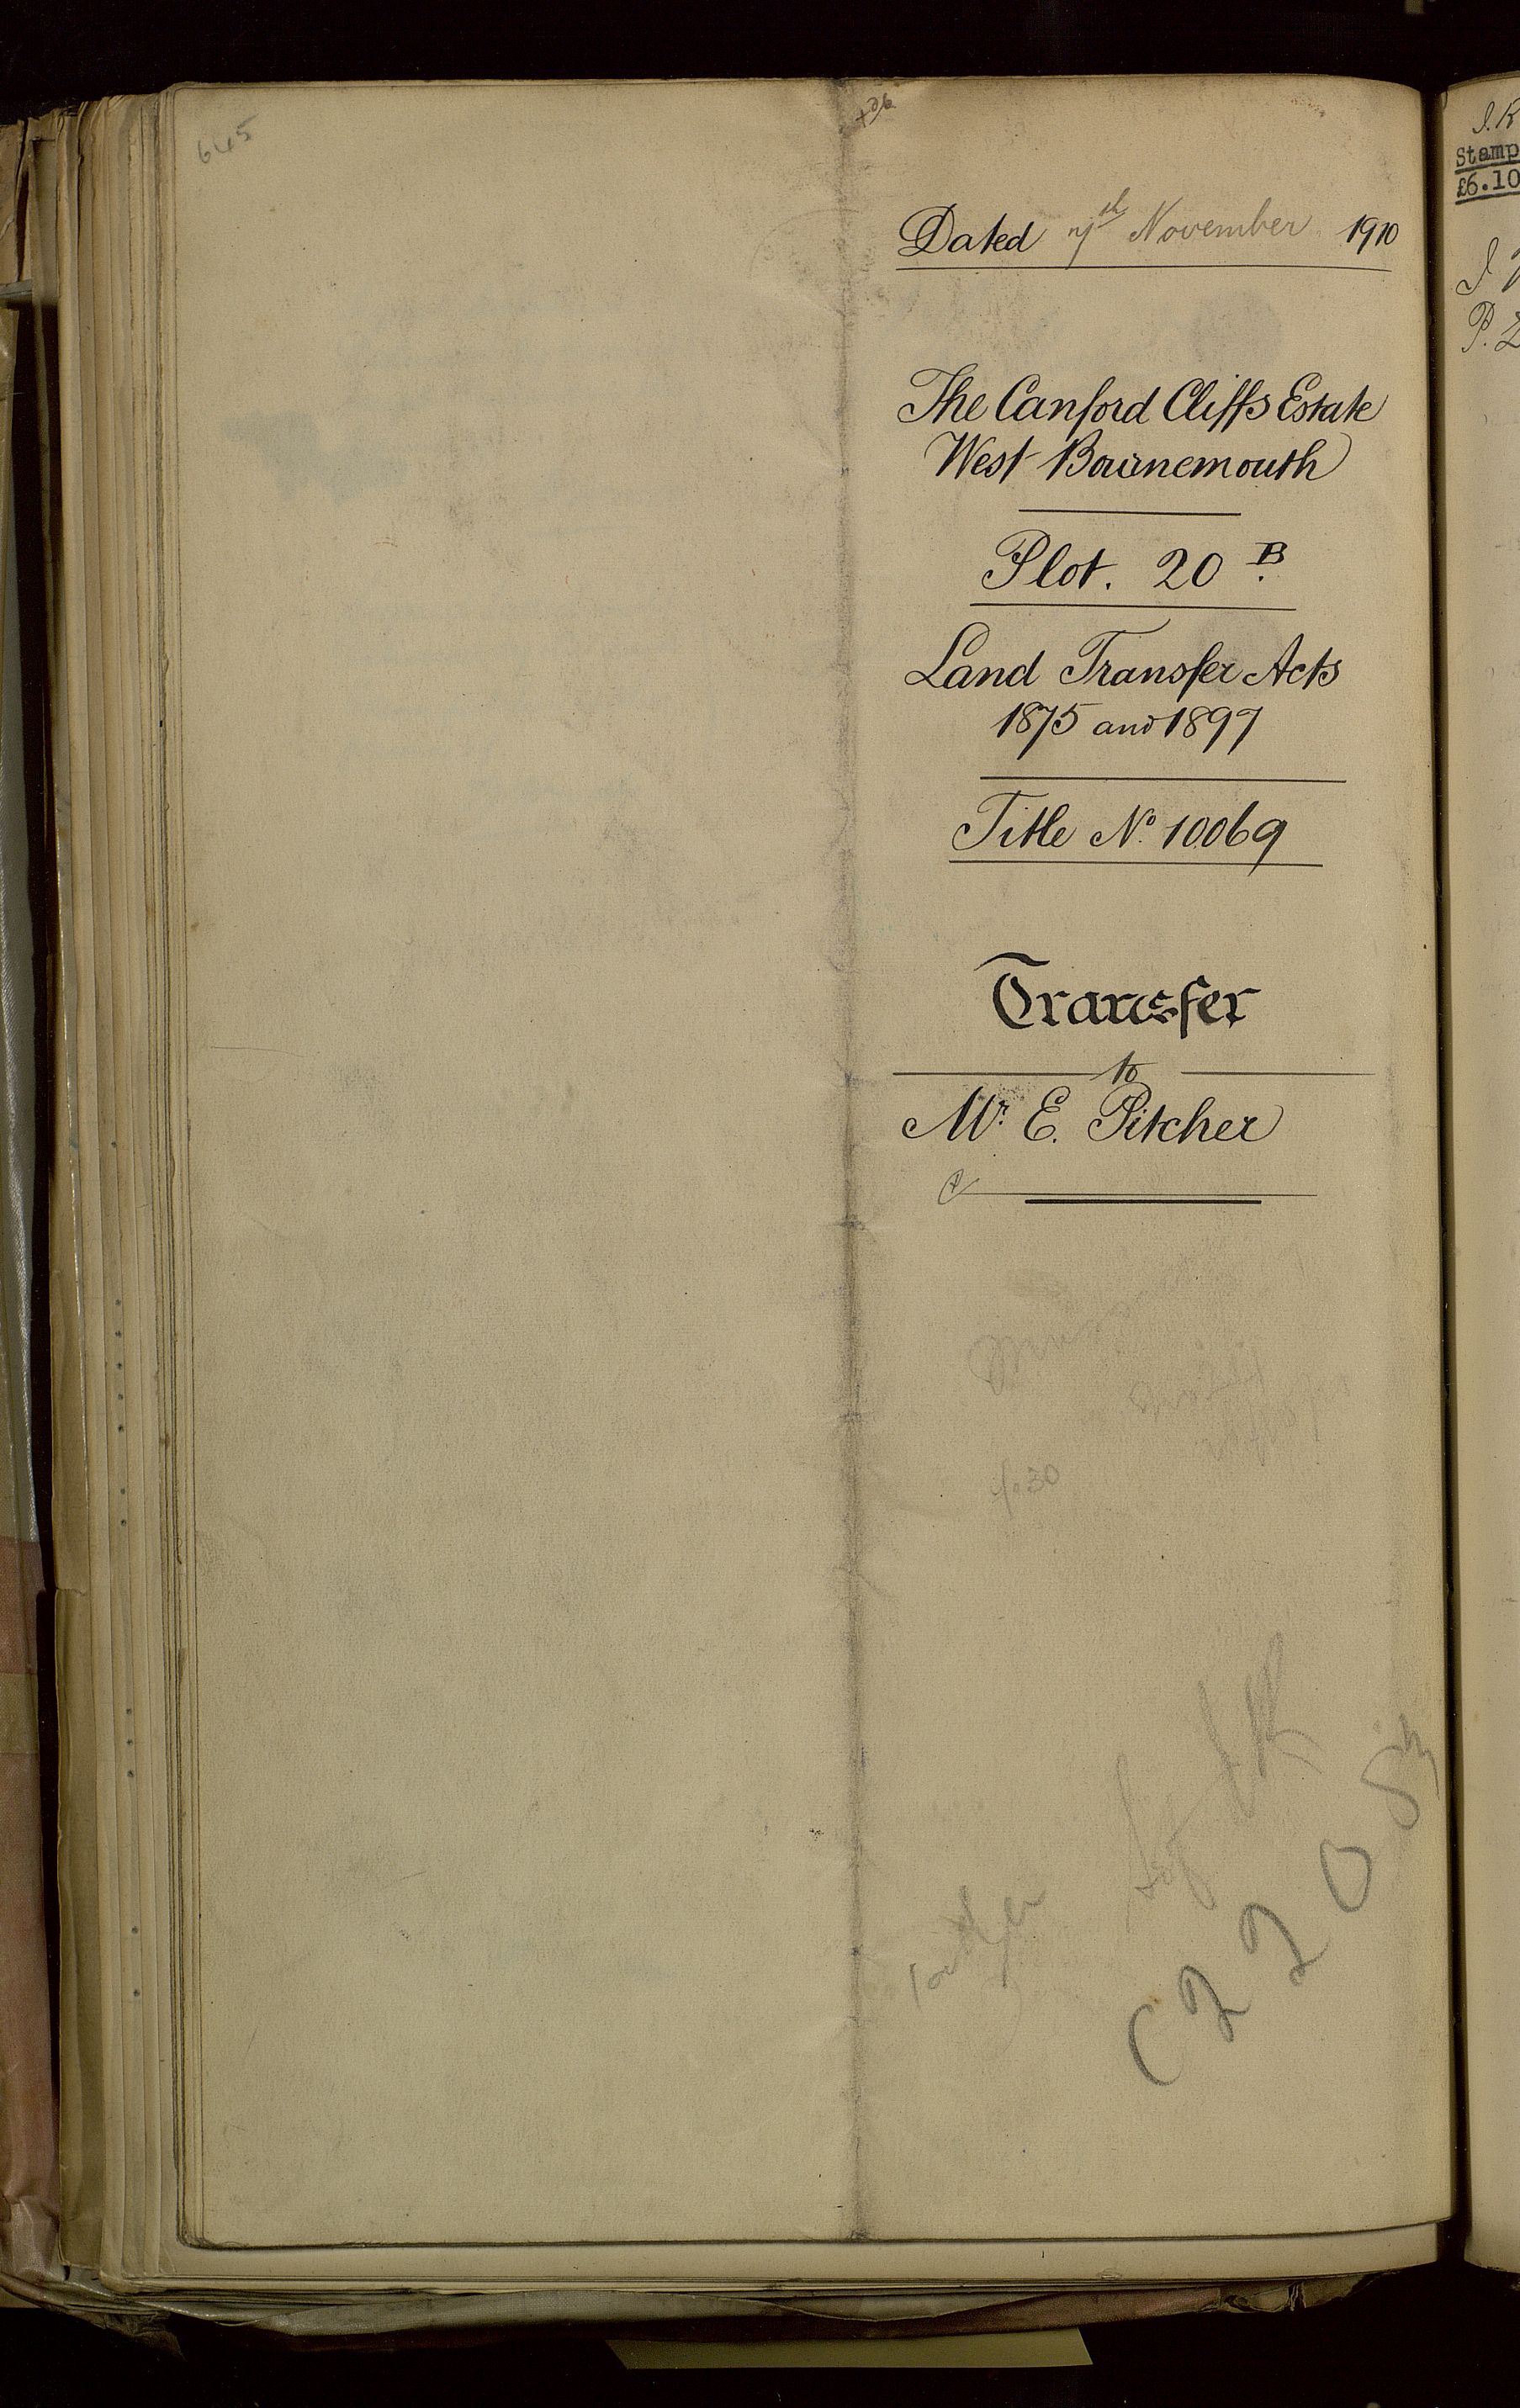 645
Dated 7th November 1910
The Canford Cliffs Estate
West Bournemouth
Plot. 20 B.
Land Transfer Acts
1875 and 1897
Title No. 10069
Transfer
to
Mr. E. Pitcher
fo 30
C 2 2 0
J.R
Stamp
£6.10